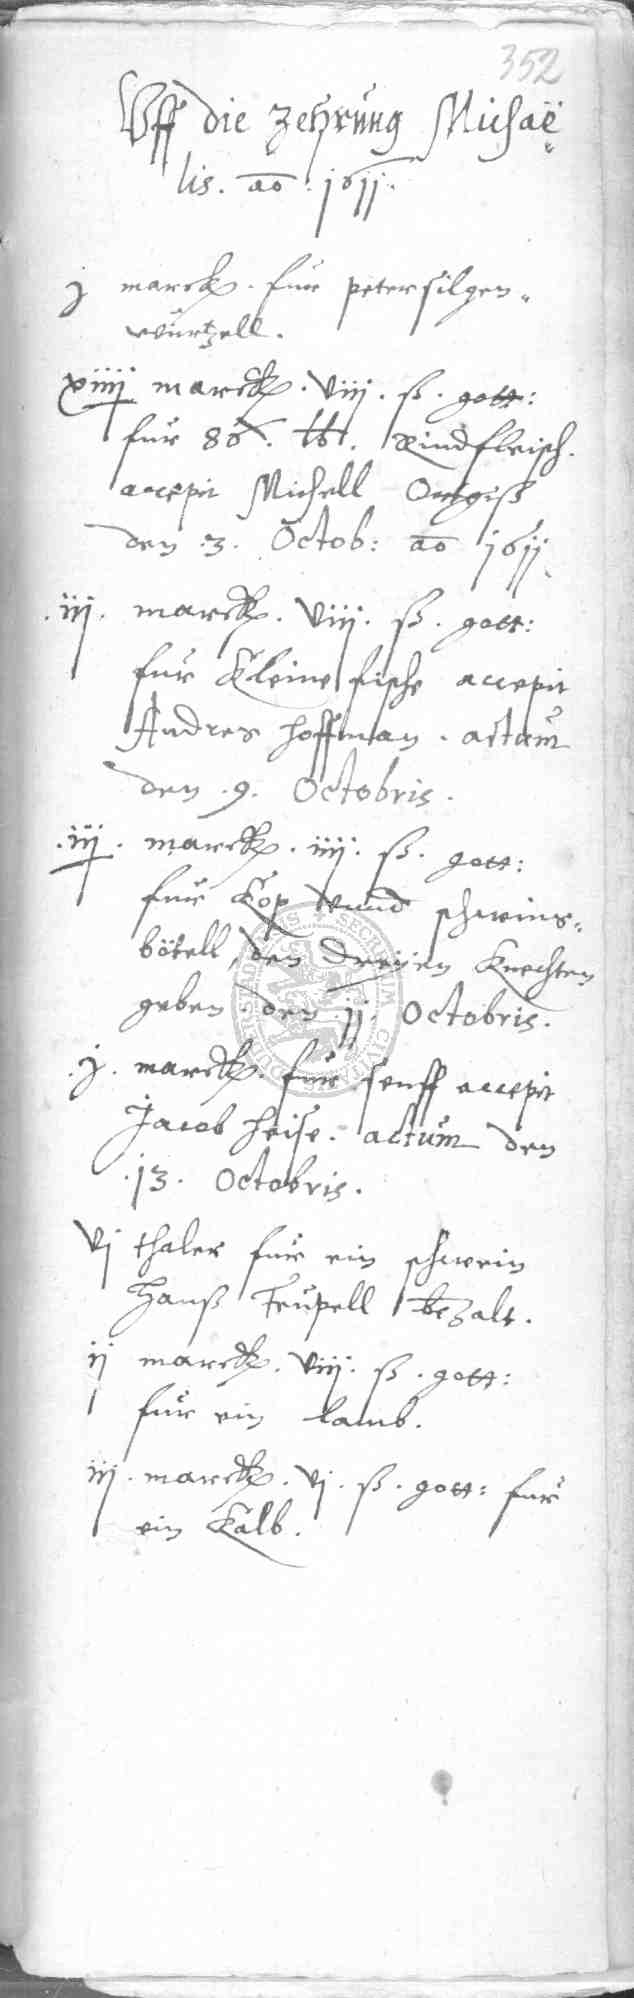 352
Uff die Zehrung Michaë
lis. ao. 1611.
j marck. fur petersilgen
wurtzell.
xiiij marck. viij. ß. gott:
fur 86. lb. Rindfleisch.
accepit Michell
den .3. Octob: ao 1611
.iij. marck. viij. ß. gott:
fur kleine fische accepit
Andres Hoffman. actum
den .9. Octobris.
.iij. marck. iiij. ß. gott:
fur kop vnnd schweins
bötell, den dreyen Knechten
geben den jj. Octobris.
.j. marck. fur senff accepit
Jacob Heise. actum den
.13. Octobris.
vj thaler fur ein schwein
Hanß Teupell bezalt.
ij marck. viij. ß. gott:
fur ein lamb.
iij. marck. vj. ß. gott: fur
ein Kalb.